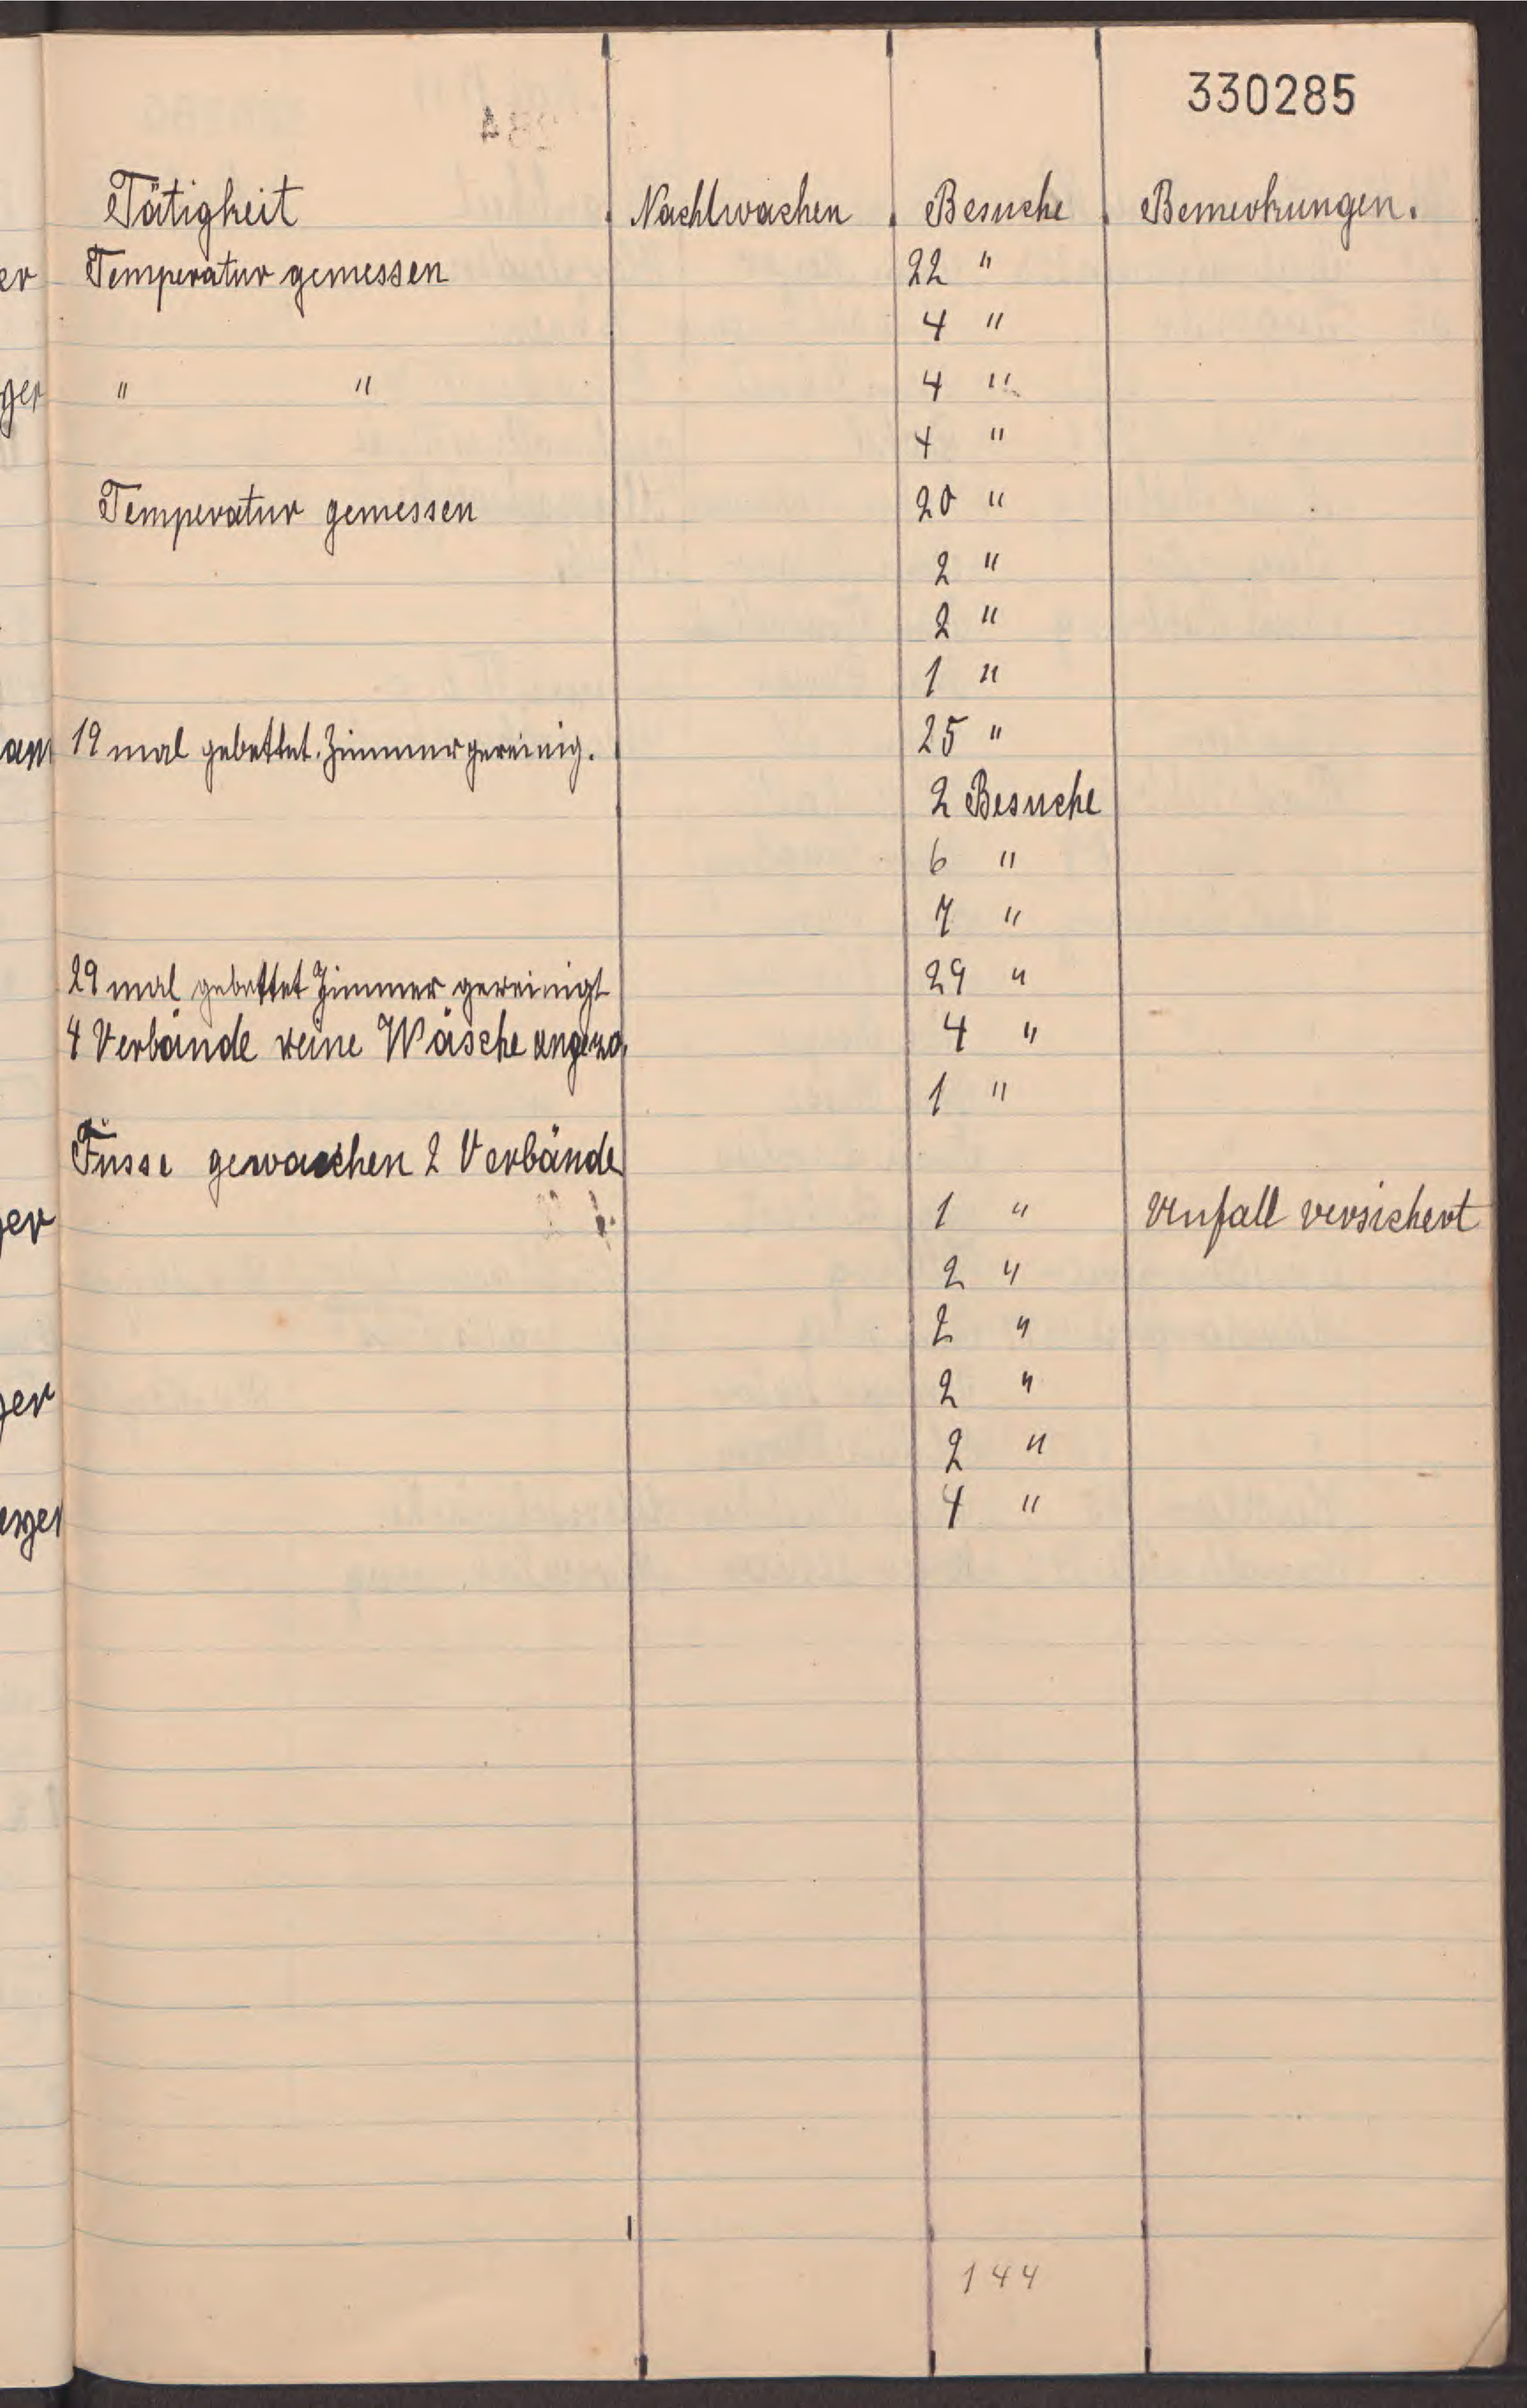 330285
Tätigkeit Nachtwachen Besuche Bemerkungen.
er Temperatur gemessen 22 "
4 "
ger " " 4 "
4 "
Temperatur gemessen 20 "
2 "
2 "
1 "
am 19 mal gebettet. Zimmer gereinig. 25 "
2 Besuche
6 "
7 "
29 mal gebettet Zimmer gereinigt 29 "
4 Verbände reine Wäsche angezo. 4 "
1 "
Füsse gewaschen 2 Verbände
ger 1 " Unfall versichert
2 "
2 "
ger 2 "
2 "
erger 4 "
144